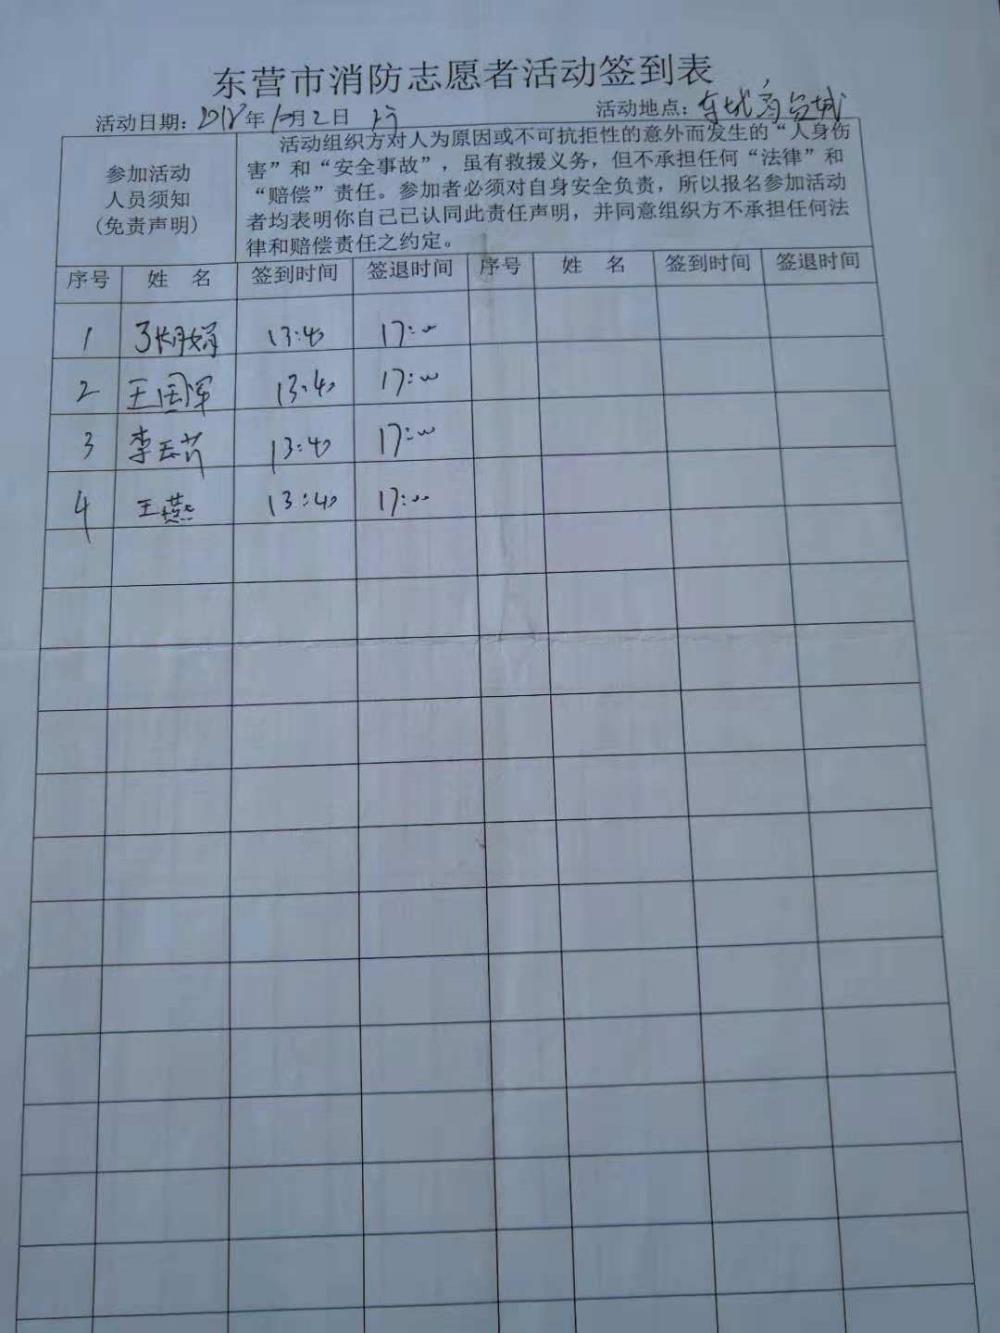 东营市消防志愿者活动签到表
活动日期：2018年10月2日 活动地点：东城商贸城
参加活动
人员须知
(免责声明)
活动组织方对人为原因或不可抗拒性的意外而发生的“人身伤
害”和“安全事故”，虽有救援义务，但不承担任何“法律”和
“赔偿”责任。参加者必须对自身安全负责，所以报名参加活动
者均表明你自己已认同此责任声明，并同意组织方不承担任何法
律和赔偿责任之约定。
序号 姓 名 签到时间 签退时间 序号 姓 名 签到时间 签退时间
1 张月娟 13:40 17:00
2 王国军 13:40 17:00
3 李云芹 13:40 17:00
4 王燕 13:40 17:00